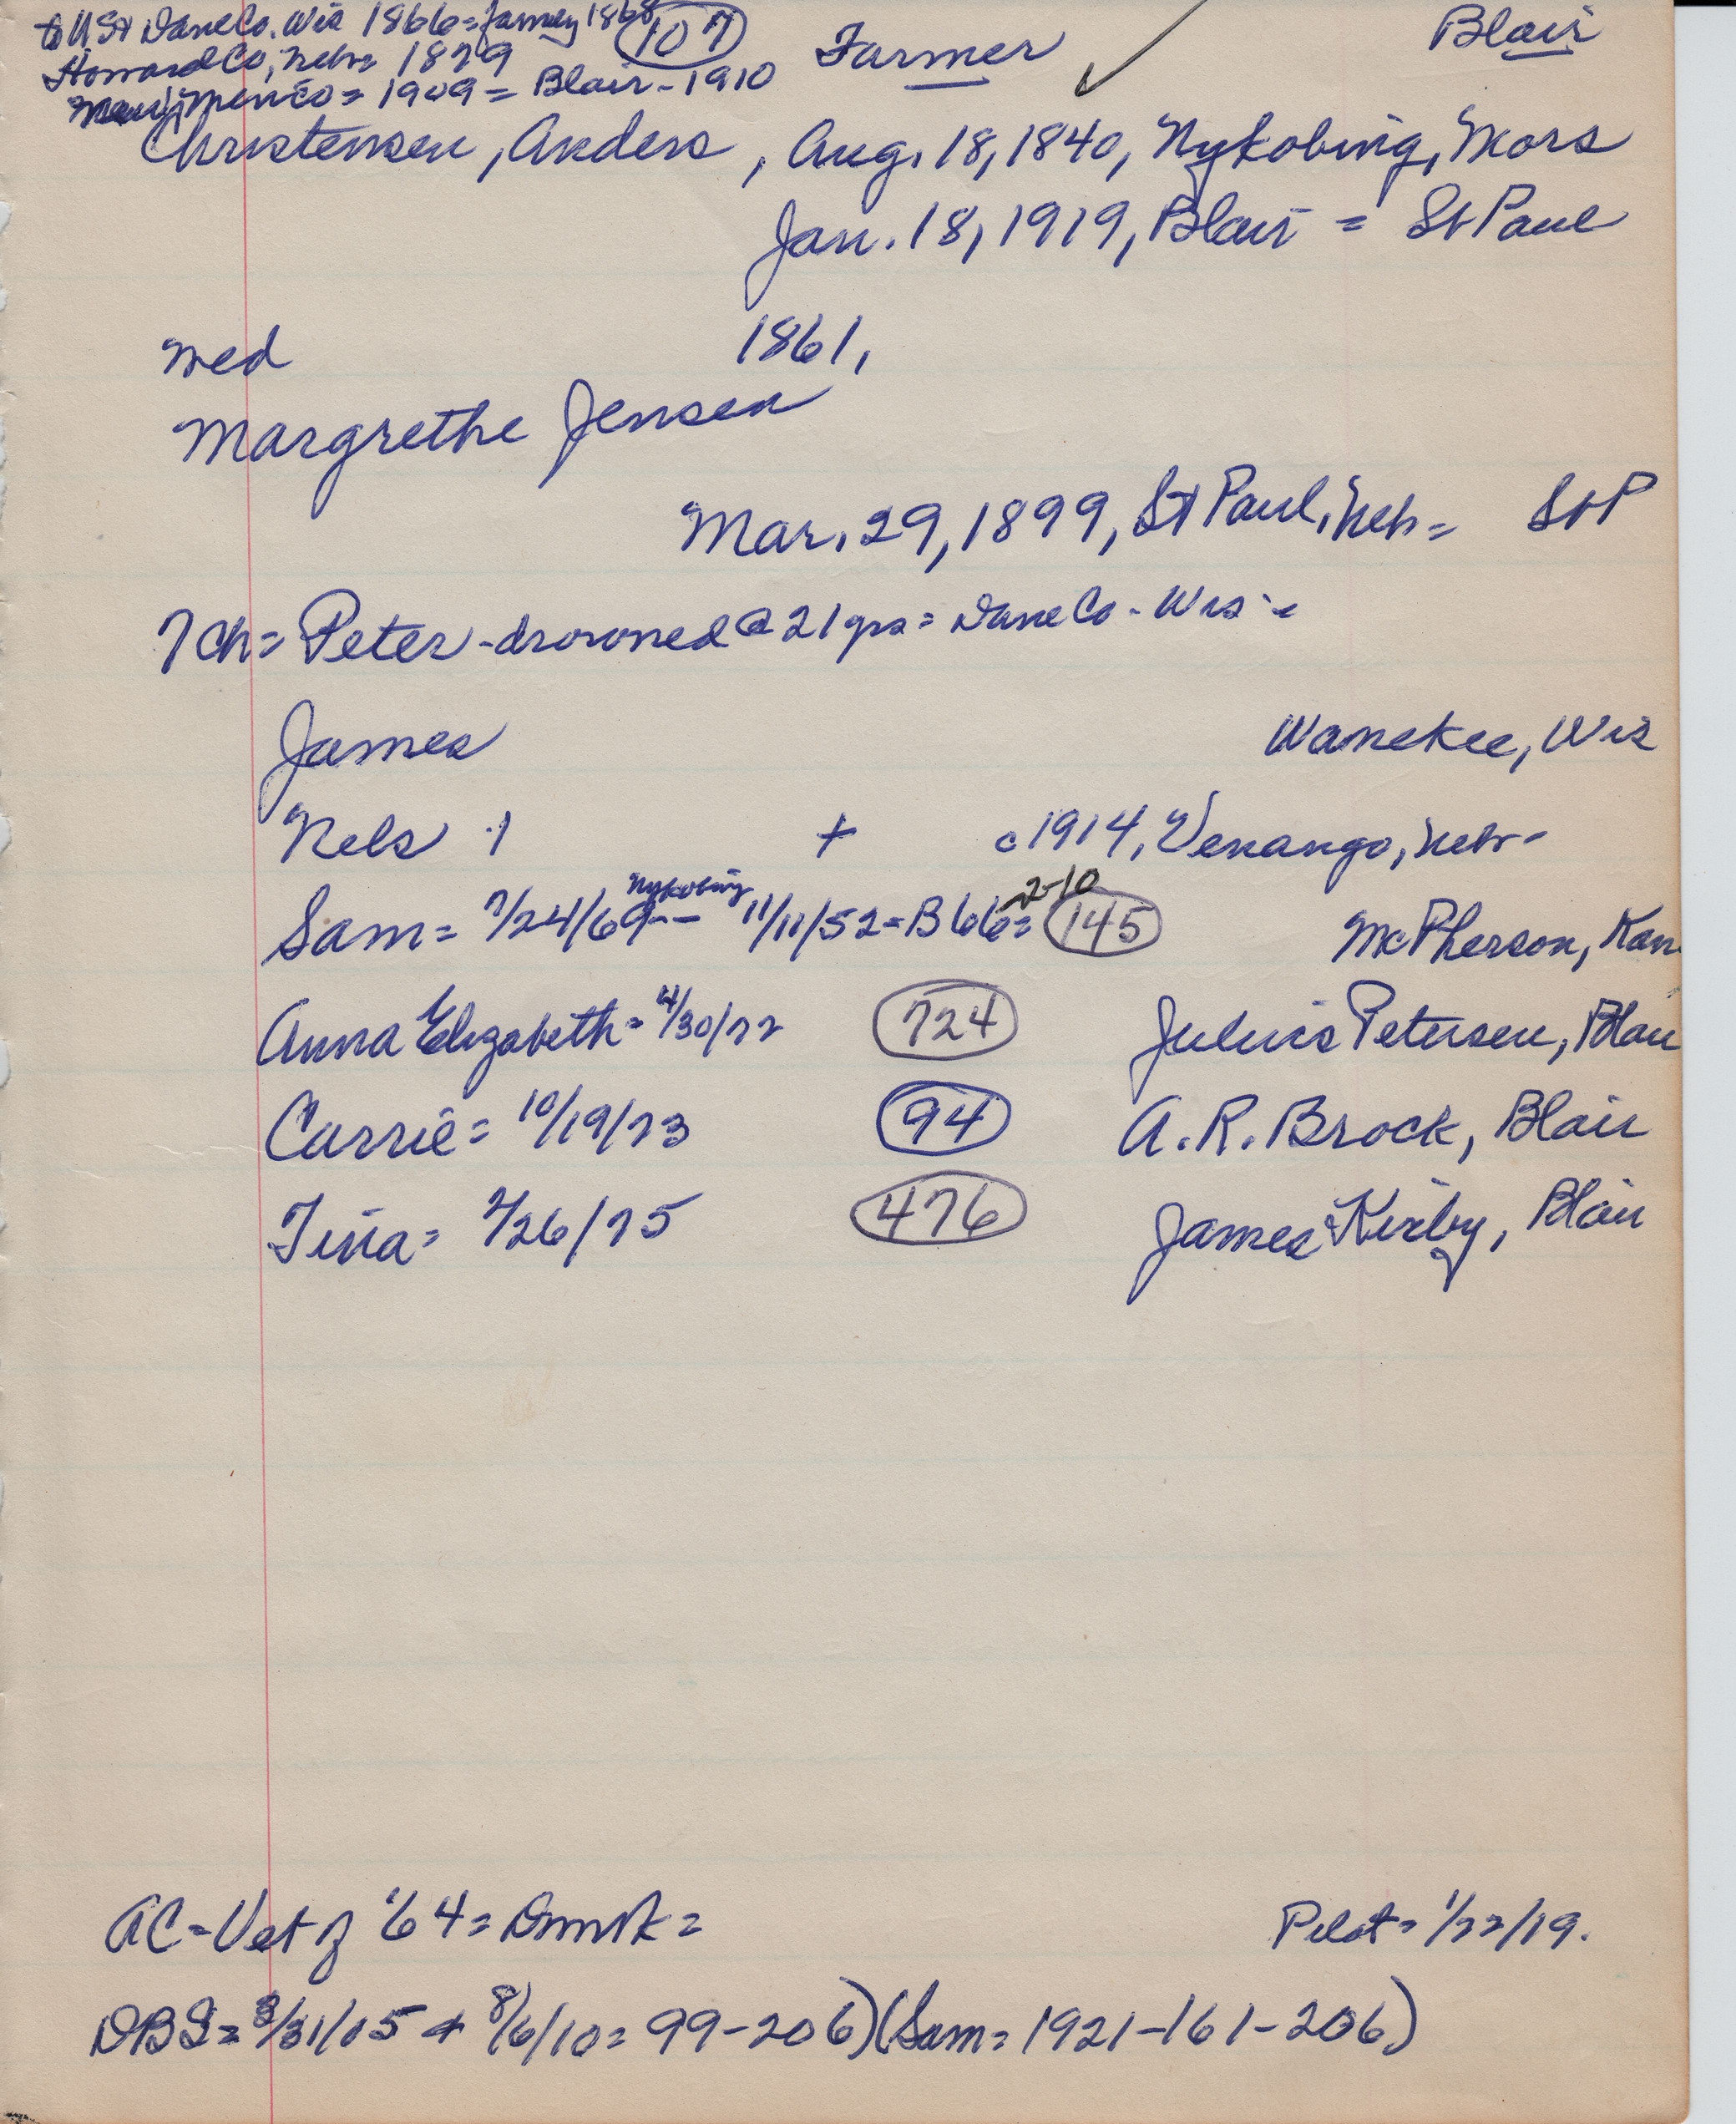 to USA Dane Co. Wis 1866 = family 1868 (107) Farmer Blair
Howard Co, Nebr = 1879
New Mexico = 1909 = Blair - 1910
Christensen, Anders, Aug. 18, 1840, Nykobing, Mors
Jan. 18, 1919, Blair = St Paul
med 1861,
Margrethe Jensen
Mar. 29, 1899, St Paul, Neb = St P
7 ch = Peter - drowned @ 21 yrs = Dane Co - Wis -
James Wanekee, Wis
Nels + c 1914, Venango, Nebr -
Nykobing 2-10
Sam = 7/24/69 -- 11/11/52 = B 66 = (145) McPherson, Kan
Anna Elizabeth = 4/30/72 (724) Julius Petersen, Blair
Carrie = 10/19/73 (94) A. R. Brock, Blair
Tina = 2/26/75 (476) James Kirby, Blair
AC - Vet of '64 = Dnmrk = Pilot = 1/22/19.
DBS = 3/31/05 + 8/6/10 = 99-206) (Sam = 1921-161-206)